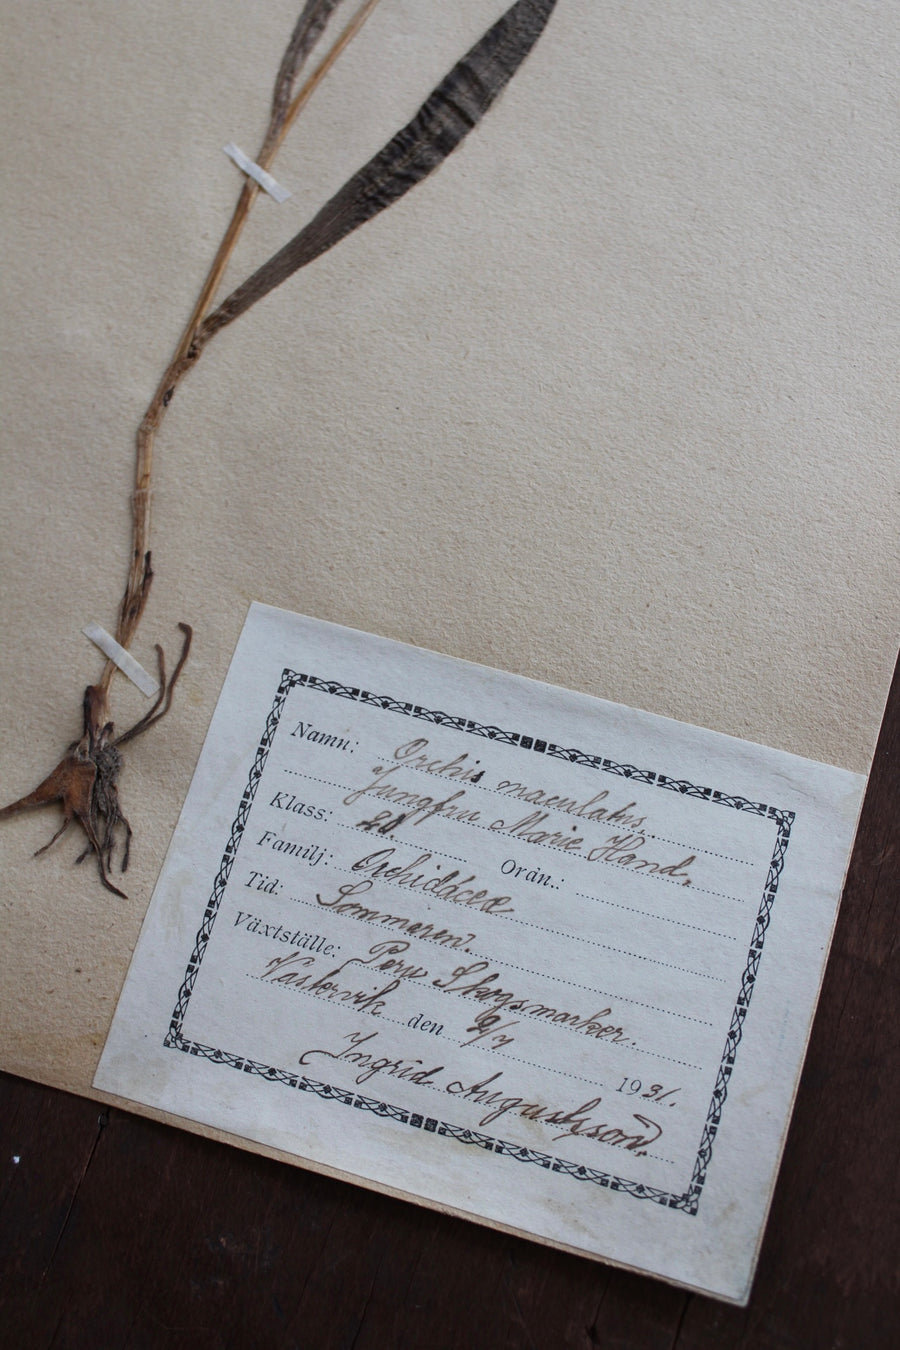 Namn: Orchis maculatus.
Jungfru Marie Hand.
Klass: 20 Ordn.:
Familj: Orchidáceæ
Tid: Sommaren.
Växtställe: Skogsmarker.
Västervik den 2/7 1931.
Ingrid Augustsson.